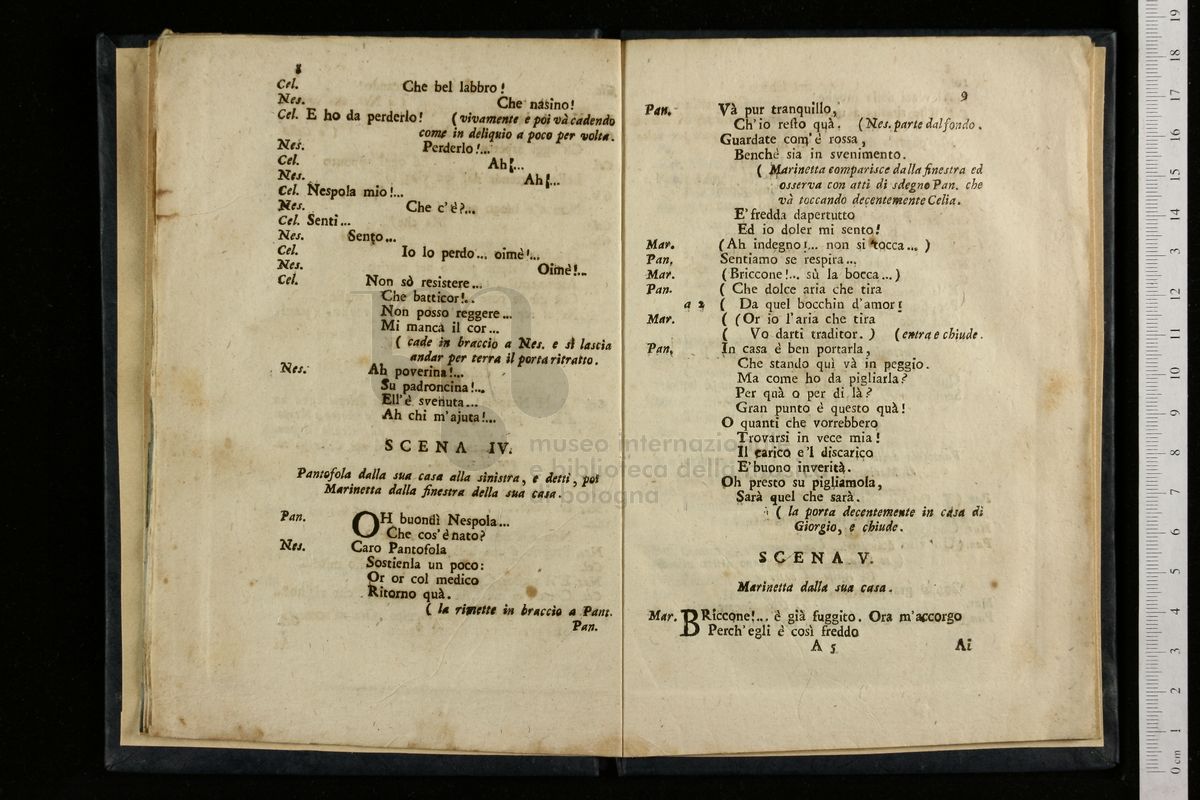 8
Cel. Che bel labbro!
Nes. Che nasino!
Cel. E ho da perderlo! (vivamente e poi và cadendo
come in deliquio a poco per volta.
Nes. Perderlo!...
Cel. Ah!...
Nes. Ah!...
Cel. Nespola mio!...
Nes. Che c'è?...
Cel. Senti...
Nes. Sento...
Cel. Io lo perdo... oimè!...
Nes. Oimè!...
Cel. Non sò resistere...
Che batticor!..
Non posso reggere...
Mi manca il cor...
( cade in braccio a Nes. e si lascia
andar per terra il porta ritratto.
Nes. Ah poverina!...
Su padroncina!...
Ell'è svenuta...
Ah chi m'ajuta!...
SCENA IV.
Pantofola dalla sua casa alla sinistra, e detti, poi
Marinetta dalla finestra della sua casa.
Pan. OH buondì Nespola...
Che cos'è nato?
Nes. Caro Pantofola
Sostienla un poco:
Or or col medico
Ritorno quà.
( la rimette in braccio a Pant.
Pan.
9
Pan. Và pur tranquillo,
Ch'io resto quà. (Nes. parte dal fondo.
Guardate com'è rossa,
Benchè sia in svenimento.
( Marinetta comparisce dalla finestra ed
osserva con atti di sdegno Pan. che
và toccando decentemente Celia.
E' fredda dapertutto
Ed io doler mi sento!
Mar. (Ah indegno!... non si tocca... )
Pan. Sentiamo se respira...
Mar. (Briccone!... sù la bocca...)
Pan. ( Che dolce aria che tira
a 2 ( Da quel bocchin d'amor!
Mar. ( (Or io l'aria che tira
( Vo darti traditor. ) (entra e chiude.
Pan. In casa è ben portarla,
Che stando quì và in peggio.
Ma come ho da pigliarla?
Per quà o per di là?
Gran punto è questo quà!
O quanti che vorrebbero
Trovarsi in vece mia!
Il carico e'l discarico
E' buono inverità.
Oh presto su pigliamola,
Sarà quel che sarà.
( la porta decentemente in casa di
Giorgio, e chiude.
SCENA V.
Marinetta dalla sua casa.
Mar. BRiccone!... è già fuggito. Ora m'accorgo
Perch'egli è così freddo
A 5 Ai
museo internazionale
e biblioteca della musica
bologna
0 cm 1 2 3 4 5 6 7 8 9 10 11 12 13 14 15 16 17 18 19